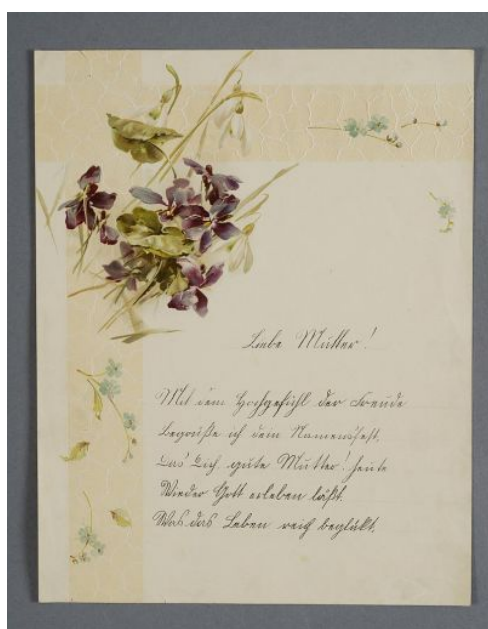 Liebe Mutter!
Mit dem Hochgefühl der Freude
begrüße ich dein Namensfest,
Das Dich, gute Mutter! heute
Wieder Gott erleben läßt.
Was das Leben reich beglükt,